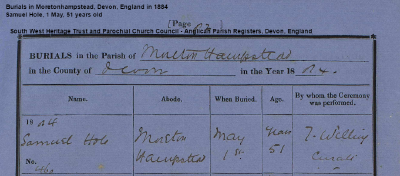 Burials in Moretonhampstead, Devon, England in 1884
Samuel Hole, 1 May, 51 years old
[Page
South West Heritage Trust and Parochial Church Council - Anglican Parish Registers, Devon, England
BURIALS in the Parish of Moreton Hampstead
in the County of Devon in the Year 18 84.
Name. Abode. When Buried. Age. By whom the Ceremony was performed.
1884
Samuel Hole Moreton Hampstead May 1st. years 51 T. Welling Curate
No.